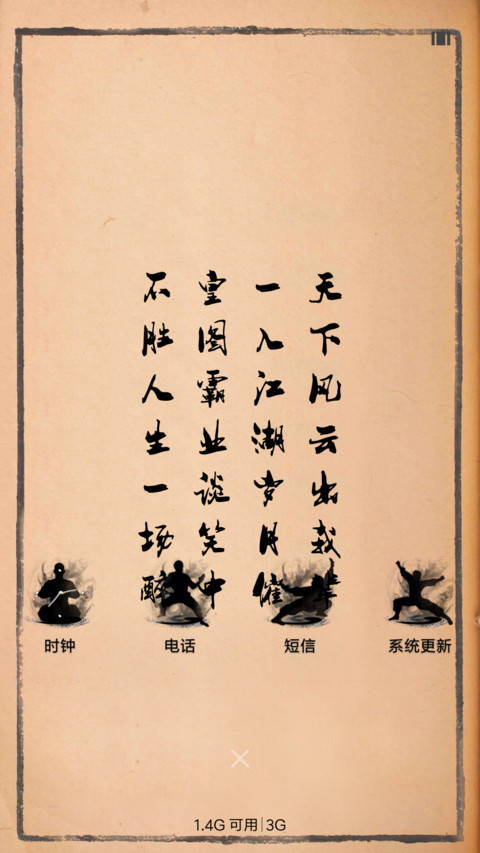 天下风云出我辈
一入江湖岁月催
皇图霸业谈笑中
不胜人生一场醉
时钟
电话
短信
系统更新
1.4G 可用|3G